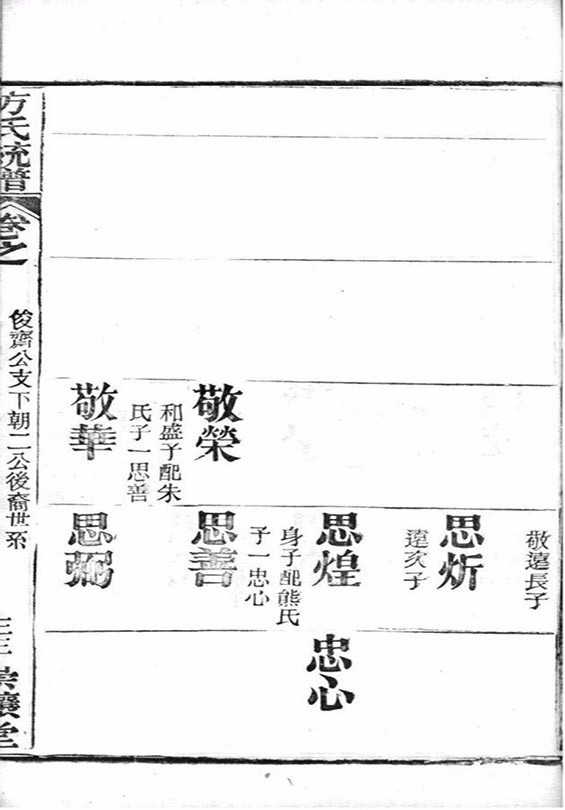 敬遠長子
思炘
遠次子
思煌
身子配熊氏
子一忠心
思善
思弼
敬榮
和盛子配朱
氏子一思善
敬華
忠心
方氏統譜
卷之
俊齋公支下朝二公後裔世系